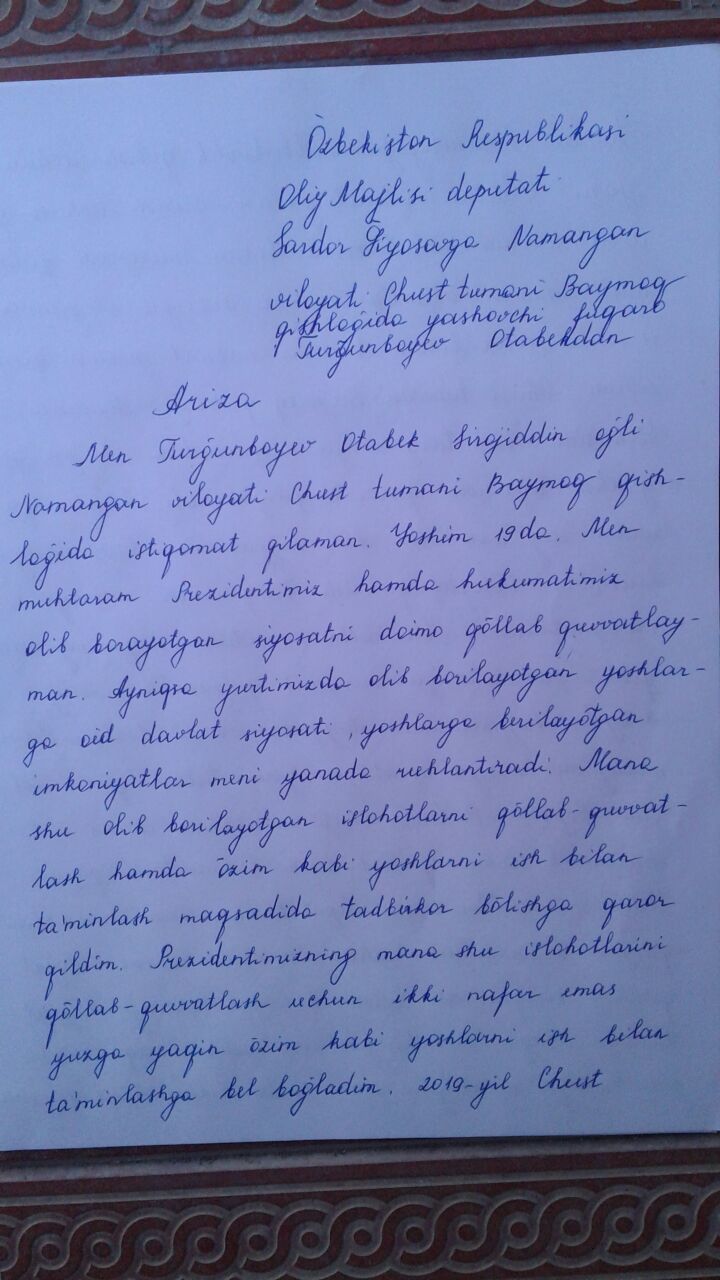 Ōzbekiston Respublikasi
Oliy Majlisi deputati
Sardor Ziyosovga Namangan
viloyati Chust tumani Baymoq
qishloğida yashovchi fuqaro
Turğunboyev Otabekdan
Ariza
Men Turğunboyev Otabek Sirojiddin oğli
Namangan viloyati Chust tumani Baymoq qish-
loğida istiqomat qilaman. Yoshim 19da. Men
muhtaram Prezidentimiz hamda hukumatimiz
olib borayotgan siyosatni doimo qōllab quvvatlay-
man. Ayniqsa yurtimizda olib borilayotgan yoshlar-
ga oid davlat siyosati, yoshlarga berilayotgan
imkoniyatlar meni yanada ruhlantiradi. Mana
shu olib borilayotgan islohotlarni qōllab-quvvat-
lash hamda ōzim kabi yoshlarni ish bilan
ta'minlash maqsadida tadbirkor bōlishga qaror
qildim. Prezidentimizning mana shu islohotlarini
qōllab-quvvatlash uchun ikki nafar emas
yuzga yaqin ōzim kabi yoshlarni ish bilan
ta'minlashga bel boğladim. 2019-yil Chust